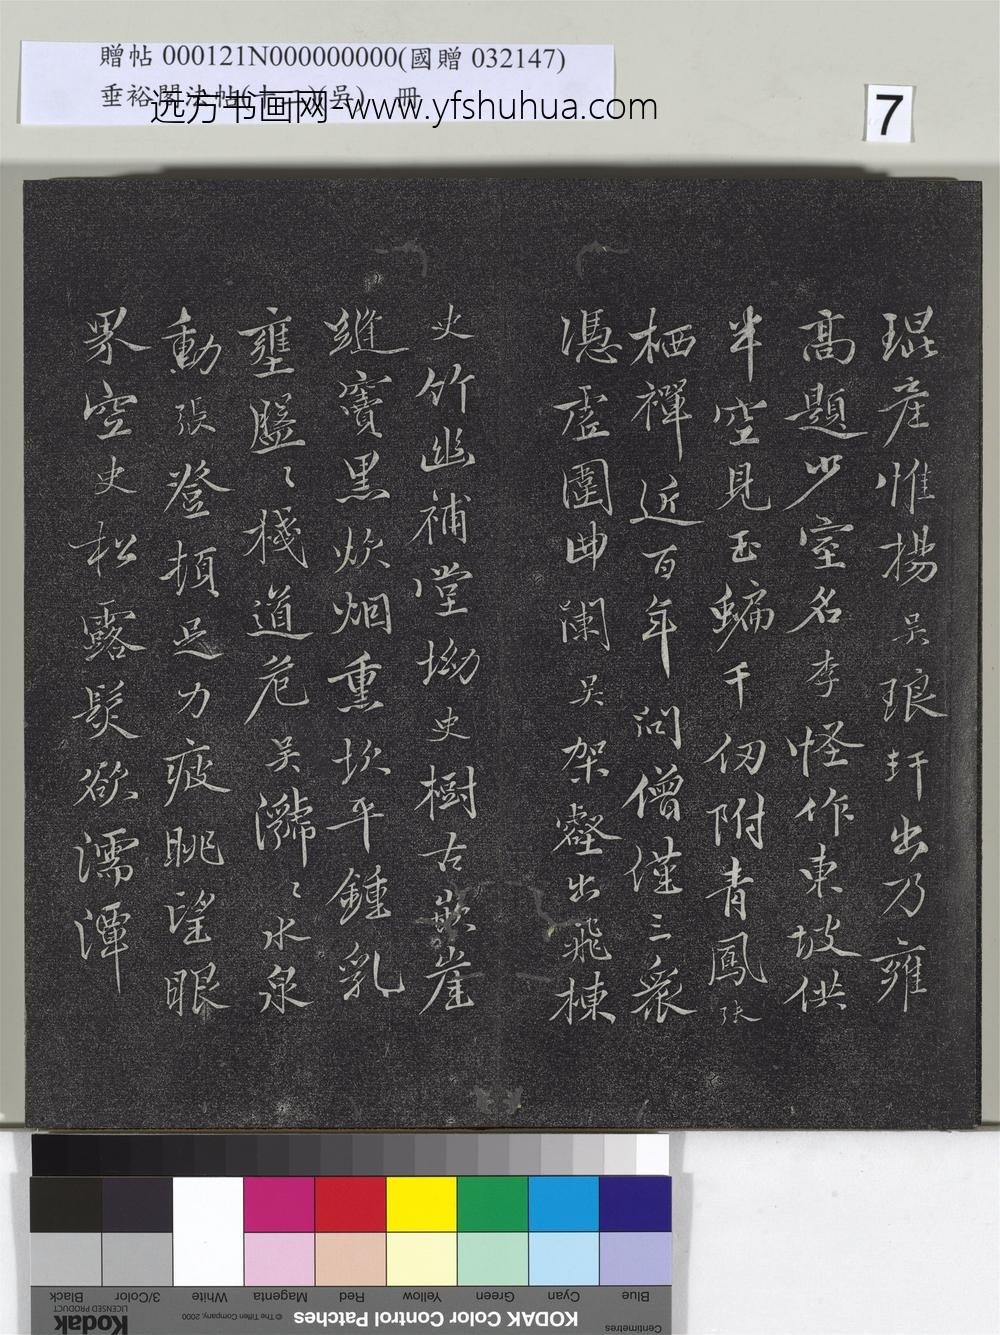 贈帖 000121N000000000(國贈 032147)
垂裕閣法帖(吳) 冊
远方书画网-www.yfshuhua.com
7
琨產惟揚吳琅玕出乃雍
高題少室名李怪作東坡供
半空見玉蝙千仞附青鳳張
栖禪近百年問僧僅三眾
憑虛圍曲闌吳架壑出飛棟
史竹幽補堂坳史樹古嵌崖
縫竇黑炊烟熏坎平鍾乳
壅盤〻棧道危吳瀰〻水泉
動張登頓足力疲眺望眼
界空史松露髮欲濡潭
Blue Cyan Green Yellow Red Magenta White 3/Color Black
Centimetres KODAK Color Control Patches © The Tiffen Company, 2000 Kodak
LICENSED PRODUCT